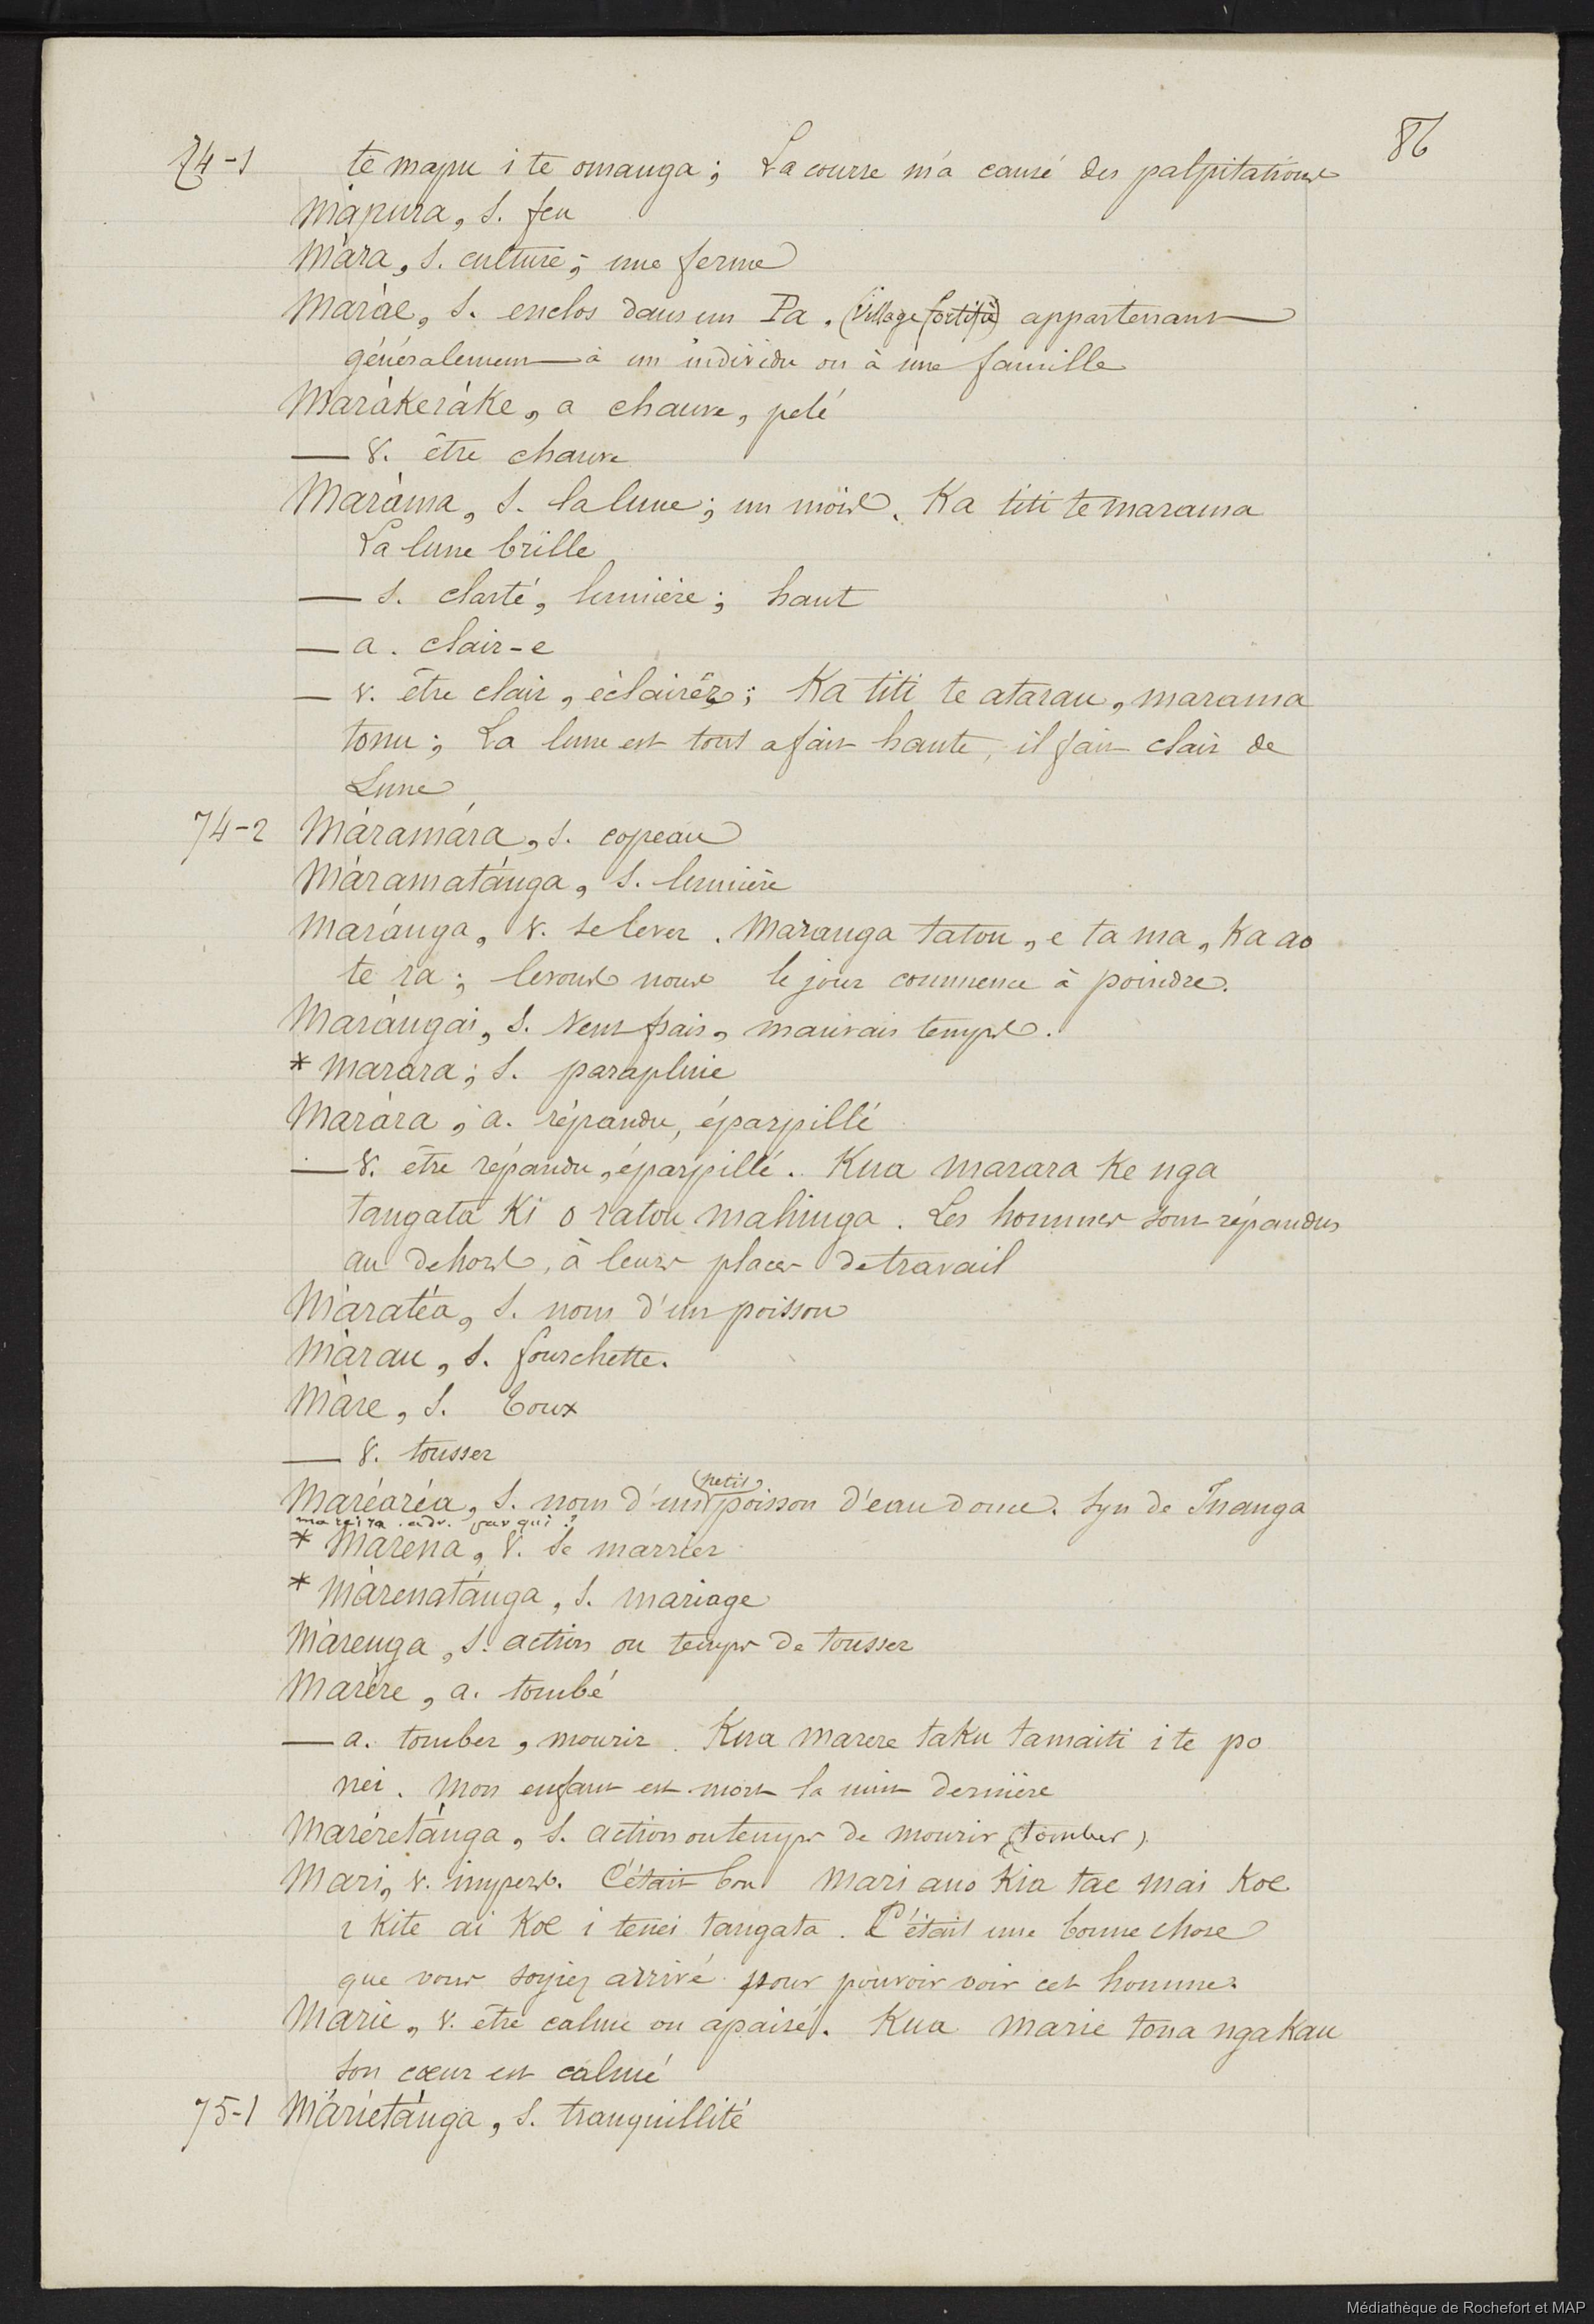 86
74-1 te mapu i te omanga; La course m'a causé des palpitations
Mápura, s. feu
Mára, s. culture; une ferme
Maráe, s. enclos dans un Pa. (Village fortifié) appartenant
généralement à un individu ou à une famille
Marákeráke, a chauve, pelé
— v. être chauve
Maráma, s. la lune; un mois. Ka titi te marama
La lune brille
— s. clarté, lumière; haut
— a. clair-e
— v. être clair, éclairer; Ka titi te atarau, marama
tonu; La lune est tout a fait haute, il fait clair de
Lune
74-2 Máramára, s. copeau
Máramatánga, s. lumière
Maránga, v. se lever. Maranga tatou, e ta ma, ka ao
te ra; levons nous le jour commence à poindre.
Marángai, s. Vent frais, mauvais temps.
* Marára; s. parapluie
Marára, a. répandu, éparpillé
— v. être répandu, éparpillé. Kua marara ke nga
tangata ki o ratou mahinga. Les hommes sont répandus
au dehors, à leurs places de travail
Máratéa, s. nom d'un poisson
Márau, s. fourchette.
Máre, s. Toux
— v. tousser
(petit)
Maréaréa, s. nom d'un poisson d'eau douce. Syn de Inanga
mareira. adv. par qui?
* Márena, v. se marrier
* Márenatánga, s. mariage
Márenga, s. action ou temps de tousser
Marére, a. tombé
— a. tomber, mourir. Kua marere taku tamaiti i te po
nei. Mon enfant est mort la nuit dernière
Maréretánga, s. action ou temps de mourir (tomber).
Mari, v. impers. C'était bon Mari ano kia tae mai koe
i kite ai koe i tenei tangata. C'était une bonne chose
que vous soyiez arrivé pour pouvoir voir cet homme.
Márie, v. être calme ou apaisé. Kua marie tona ngakau
son cœur est calmé
75-1 Márietánga, s. tranquillité
Médiathèque de Rochefort et MAP